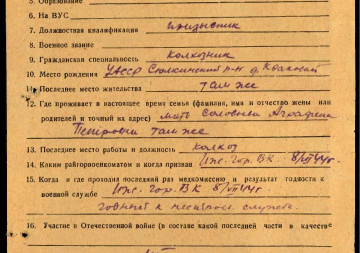 5. Образование
6. На ВУС
7. Должностная квалификация призывник
8. Военное звание
9. Гражданская специальность колхозник
10. Место рождения УАССР р-н д.
11. Последнее место жительства там же
12. Где проживает в настоящее время семья (фамилия, имя и отчество жены или
родителей и точный их адрес) мать Соловьева Аграфена
Петровна там же
13. Последнее место работы и должность колхоз
14. Каким райгорвоенкоматом и когда призван Иж. Гор. ВК 8/VII 44 г.
15. Когда и где проходил последний раз медкомиссию и результат годности к
военной службе Иж. Гор. ВК 8/VII 44 г.
годный к службе
16. Участие в Отечественной войне (в составе какой последней части и в качестве